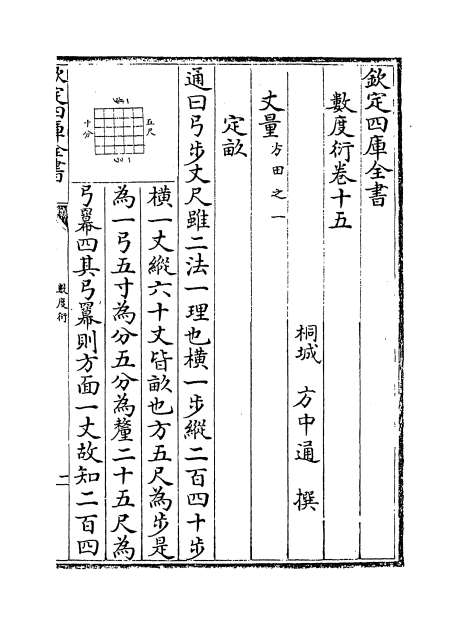 欽定四庫全書
數度衍卷十五
桐城 方中通 撰
丈量方田之一
定畝
通曰弓步丈尺雖二法一理也橫一步縱二百四十步
橫一丈縱六十丈皆畝也方五尺為步是
為一弓五寸為分五分為釐二十五尺為
弓羃四其弓羃則方面一丈故知二百四
五尺
十分
欽定四庫全書
數度衍